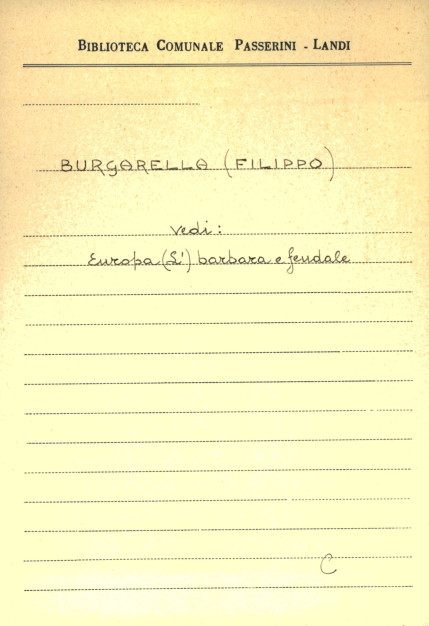 BIBLIOTECA COMUNALE PASSERINI - LANDI
BURGARELLA (FILIPPO)
vedi:
Europa (L') barbara e feudale
C